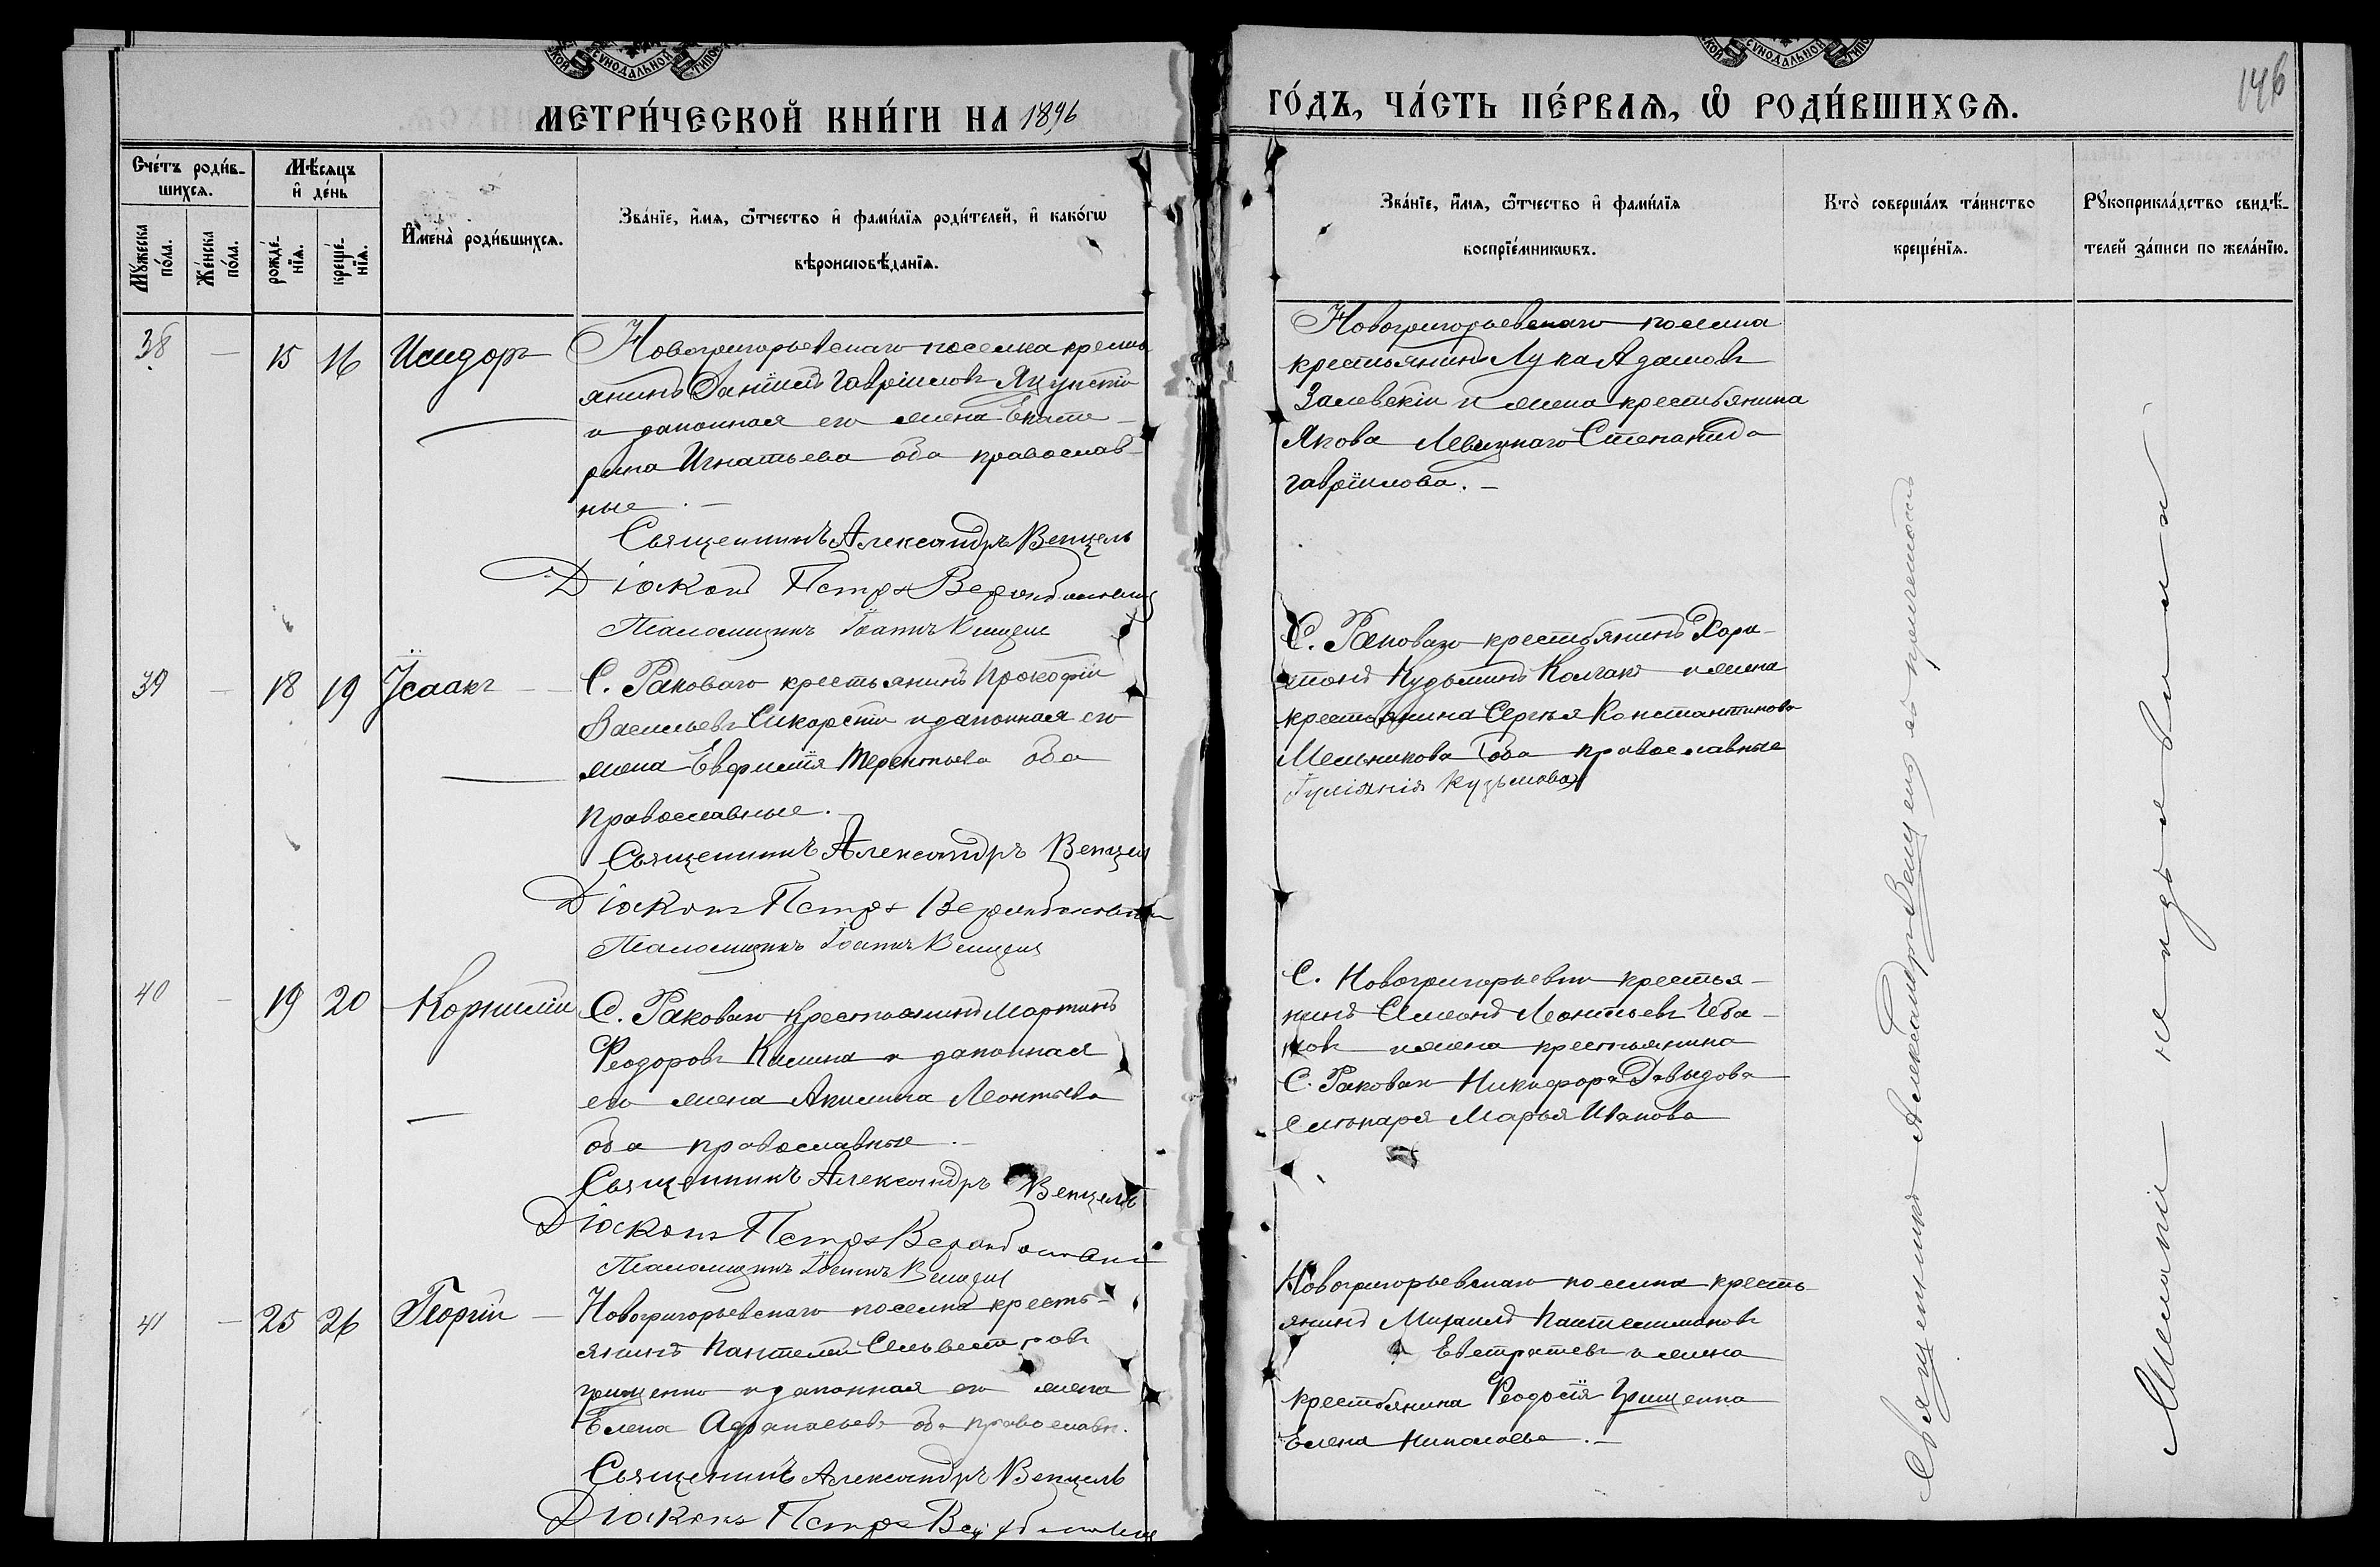 МЕТРИ́ЧЕСКОЙ КНИ́ГИ НА 1896
ГО́ДЪ, ЧА́СТЬ ПЕ́РВАѦ, Ѿ РОДИ́ВШИХСѦ.
146
Сче́тъ роди́в-
шихсѧ.
Мѣ́сѧцъ
и҆ де́нь
Мꙋ́жеска
по́ла.
Же́нска
по́ла.
рожде́-
нїѧ.
креще́-
нїѧ.
И҆мена̀ роди́вшихсѧ.
Зва́нїе, и҆́мѧ, ѻ҆́тчество и҆ фами́лїѧ роди́телей, и҆ како́гѡ
вѣроисповѣ́данїѧ.
Зва́нїе, и҆́мѧ, ѻ҆́тчество и҆ фами́лїѧ
воспрїе́мникѡвъ.
Кто̀ соверша́лъ та́инство
креще́нїѧ.
Рꙋкоприкла́дство свидѣ́-
телей за́писи по жела́нїю.
38 — 15 16 Исидоръ
Новогригорьевскаго поселка кресть
янинъ Данiилъ Гаврiиловъ
и законная его жена Екате-
рина Игнатьева оба православ-
ные.—
Священникъ Александръ Венцель
Дiаконъ Петръ
Псаломщикъ Iоаннъ
Новогригорьевскаго поселка
крестьянинъ Лука Адамовъ
Залевскiй и жена крестьянина
Якова Левицкаго Степанида
Гаврiилова.—
39 — 18 19 Iсаакъ —
С. Раковаго крестьянинъ Прокофiй
Васильевъ Сикорскiй и законная его
жена Евфимiя Терентьева оба
православные.
Священникъ Александръ Венцель
Дiаконъ Петръ
Псаломщикъ Iоаннъ
С. Раковаго крестьянинъ Хари-
тонъ Кузьминъ Колчакъ и жена
крестьянина Сергѣя Константинова
Мельникова оба православные
Iулiанiя Кузьмова
40 — 19 20 Корнилiй
С. Раковаго крестьянинъ Мартинъ
Ѳеодоровъ и законная
его жена Акилина Леонтьева
оба православные.—
Священникъ Александръ Венцель
Дiаконъ Петръ
Псаломщикъ Iоаннъ
С. Новогригорьевки крестья-
нинъ Симеонъ Леонтьевъ Чеба-
новъ и жена крестьянина
С. Раковаго Никифора Давидова
Слюнаря Марья Иванова
41 — 25 26 Георгiй —
Новогригорьевскаго поселка кресть-
янинъ Пантелей Сильвестровъ
Грищенко и законная его жена
Елена Афанасьева оба православн.
Священникъ Александръ Венцель
Дiаконъ Петръ
Новогригорьевскаго поселка кресть-
янинъ Михаилъ Пантелеимоновъ
Евстратiевъ и жена
крестьянина Ѳеодосiя Грищенко
Елена Николаева.—
Священникъ Александръ Венцель съ причетомъ